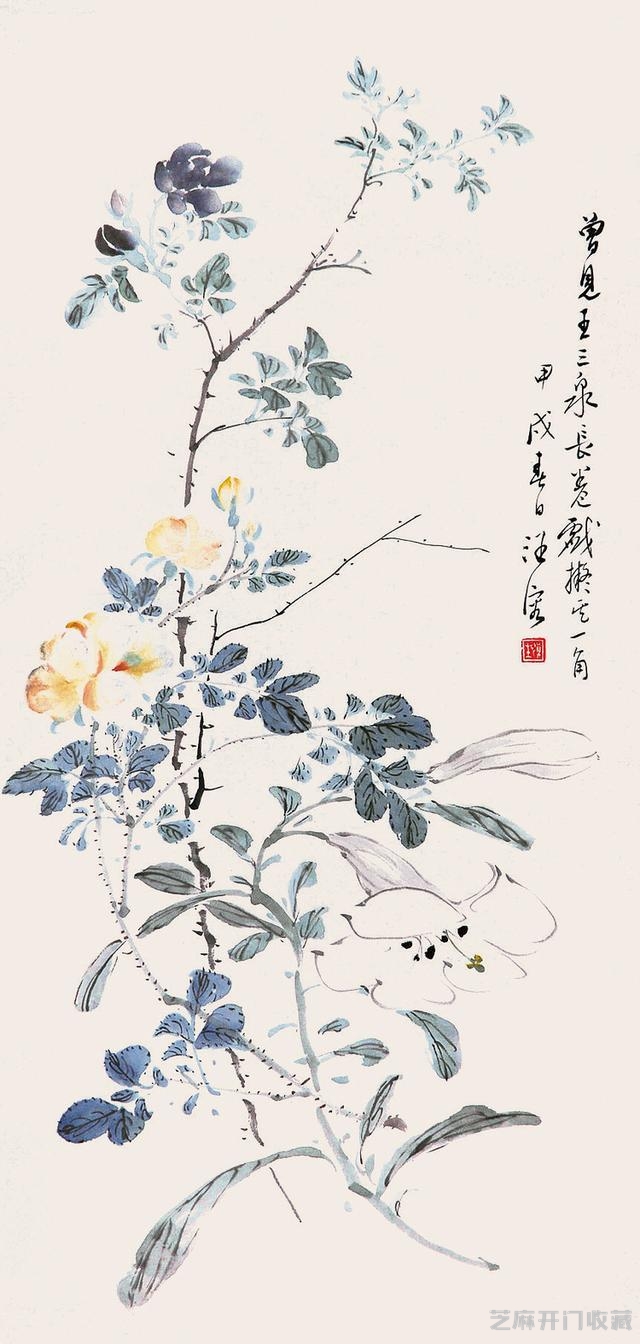 曾見王三泉長卷戲擬其一角
甲戌春日
芝麻开门收藏